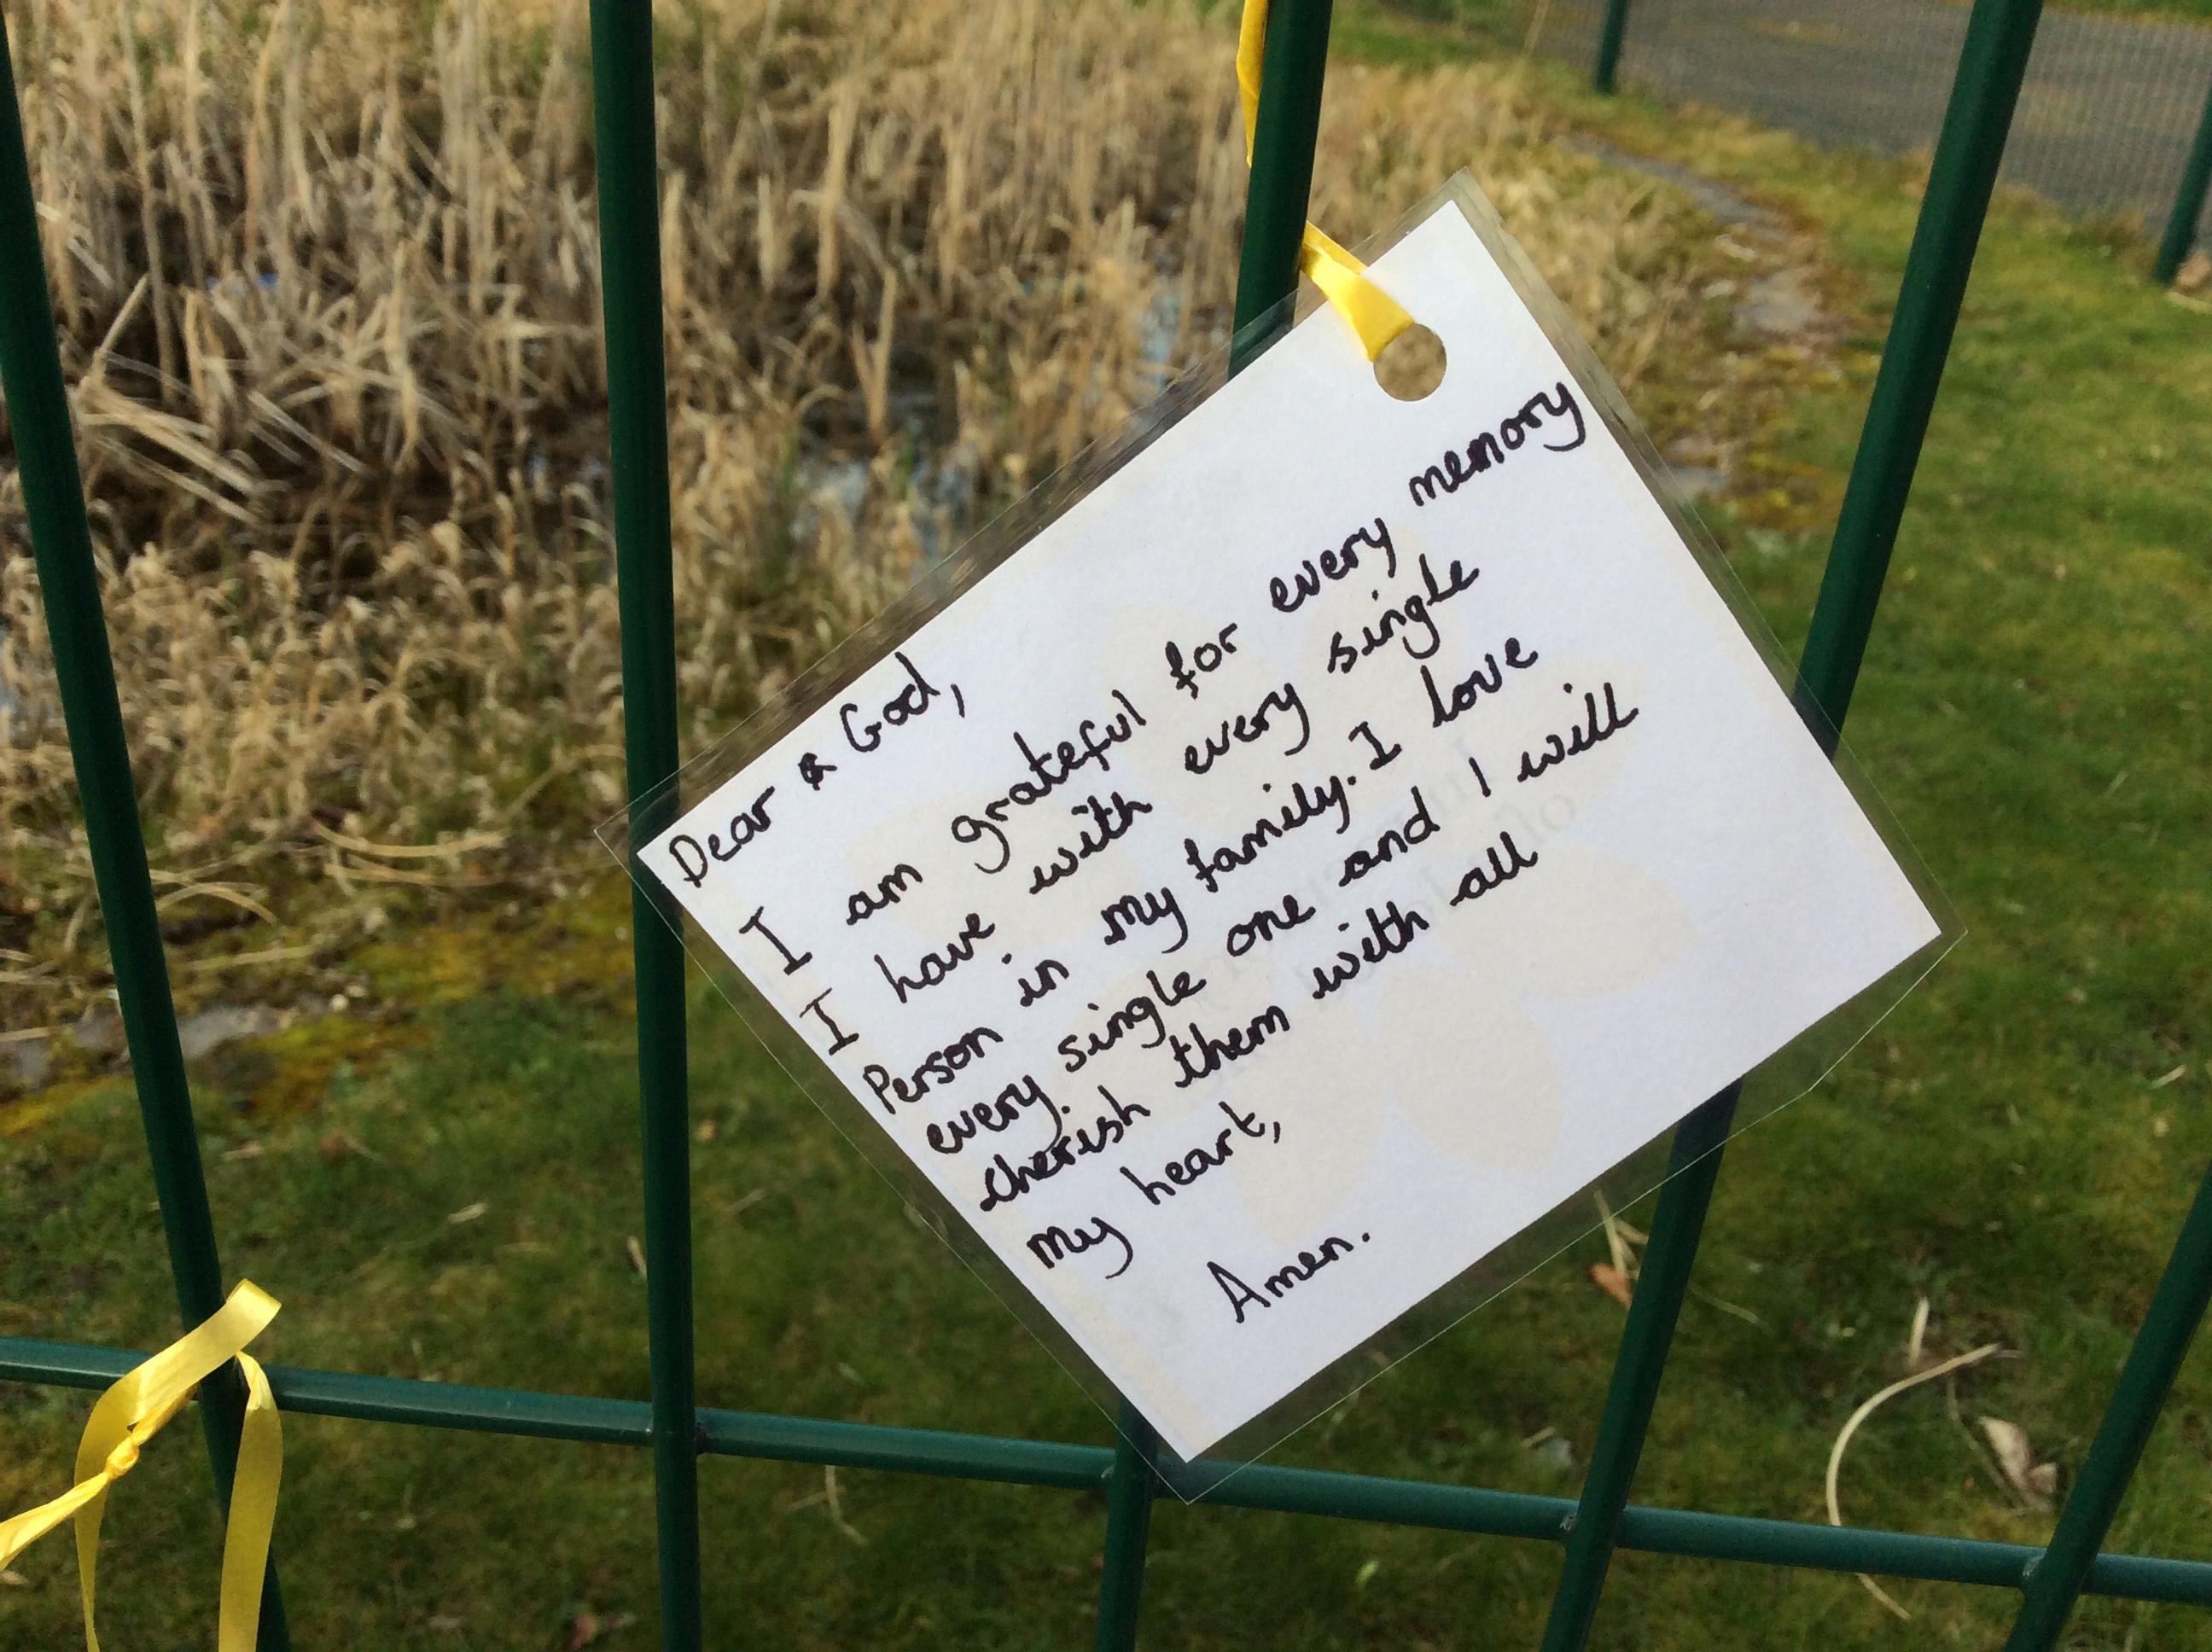 Dear God,
I am grateful for every memory
I have with every single
Person in my family. I love
every single one and I will
cherish them with all
my heart,
Amen.